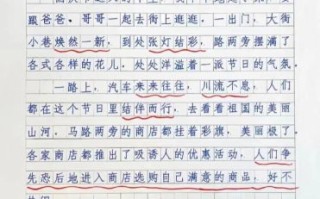 跟爸爸。哥哥一起去街上逛逛,一出门,大街
小巷焕然一新,到处张灯结彩,路两旁摆满了
各式各样的花儿。处处洋溢着一派节日的气氛。
一路上,汽车来来往往,川流不息,人们
都在这个节日里结伴而行,去看看祖国的美丽
山河,马路两旁的商店都挂着彩旗,美丽极了。
各家商店都推出了吸诱人的优惠活动,人们争
先恐后地进入商店选购自己满意的商品,好不